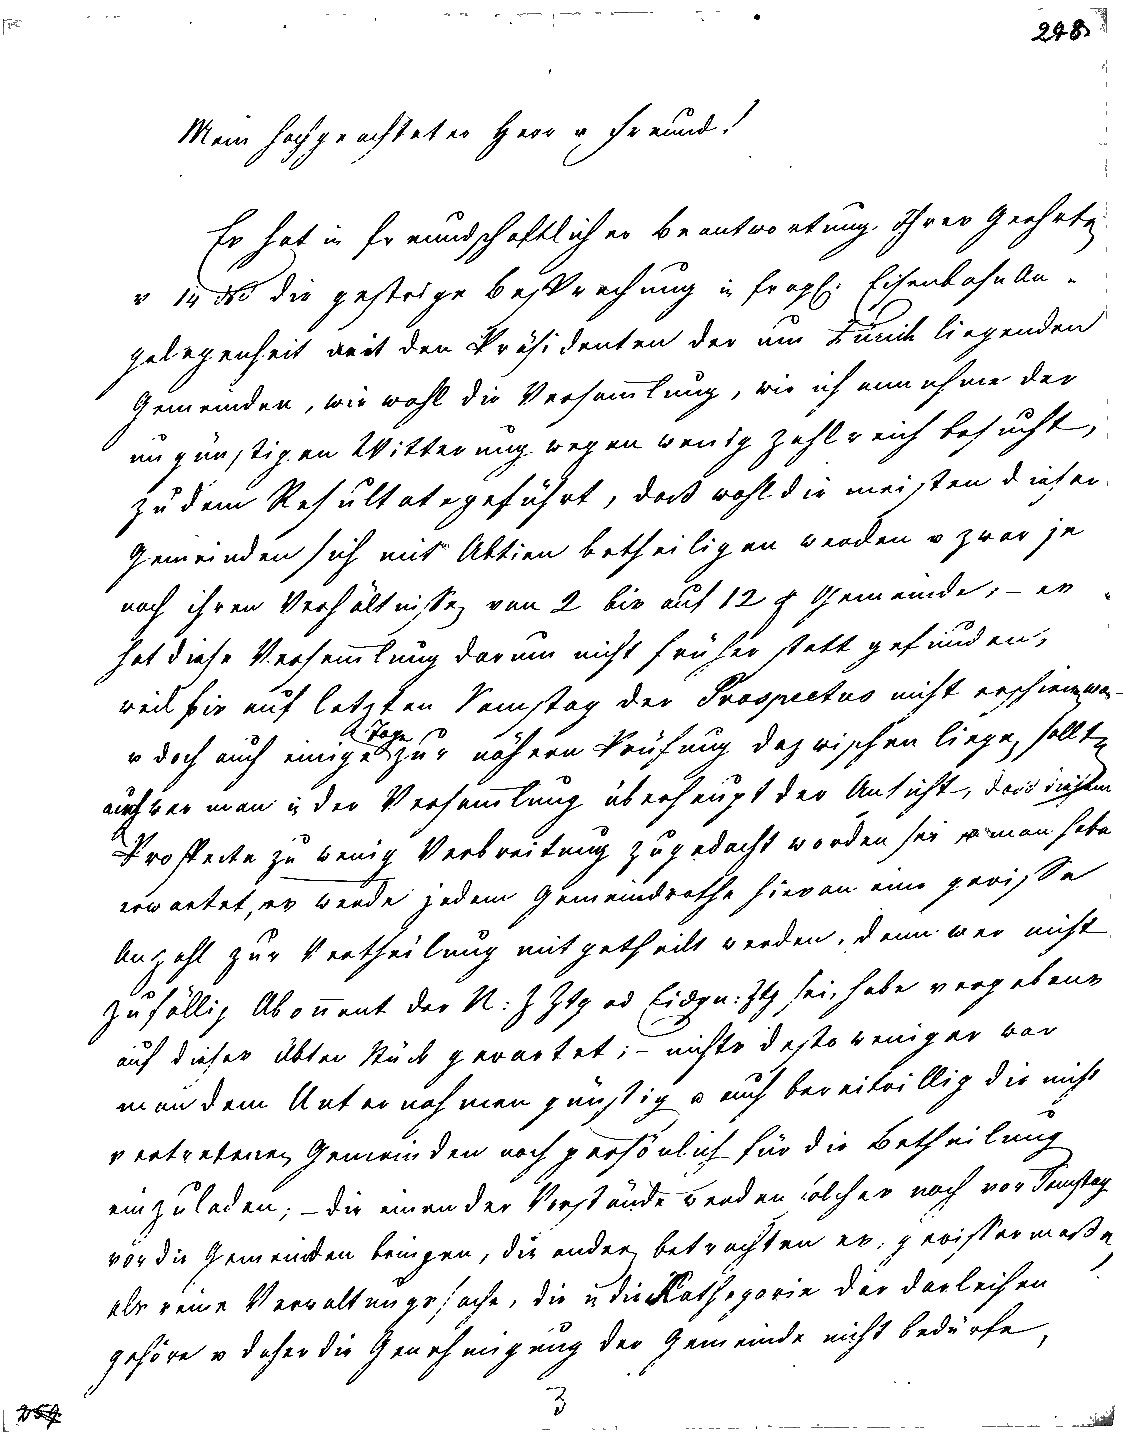 248
Mein hochgeachteter Herr u Freund!
Es hat in freundschaftlicher Beantwortung Ihrer Geehrten
v 14 die gestrige Besprechung in fragl. Eisenbahn An-
gelegenheit mit den Präsidenten der um Zürich liegenden
Gemeinden, wie wohl die Versam̄lung, wie ich annehme der
ungünstigen Witterung wegen wenig zahlreich besucht,
zu dem Resultate geführt, dass wohl die meisten dieser
Gemeinden sich mit Aktien betheiligen werden u zwar je
nach ihren Verhältnissen von 2 bis auf 12 p Gemeinde; – es
hat diese Versam̄lung darum nicht früher statt gefunden,
weil bis auf letzten Samstag der Prospectus nicht erschienen war
u doch auch einige Tage zur nähern Prüfung dazwischen liegen sollten
auch war man in der Versam̄lung überhaupt der Ansicht, dass diesem
Prospecte zu wenig Verbreitung zugedacht worden sei u man habe
erwartet, es werde jedem Gemeindrathe hievon eine gewisse
Anzahl zur Vertheilung mitgetheilt werden, denn wer nicht
zufällig Abon̄ent der N: Z Ztg od Eidgn: Ztg sei, habe vergebens
auf dieses Aktenstück gewartet; – nichts desto weniger war
man dem Unternehmen günstig u auch bereitwillig die nicht
vertretenen Gemeinden noch persönlich für die Betheilung
einzuladen; – die einen der Vorstände werden solches noch vor Samstag
vor die Gemeinden bringen, die andern betrachten es gewissermassen
als reine Verwaltungssache, die in die Kathegorie der Darleihen
gehöre u daher die Genehmigung der Gemeinde nicht bedürfe,
3
259